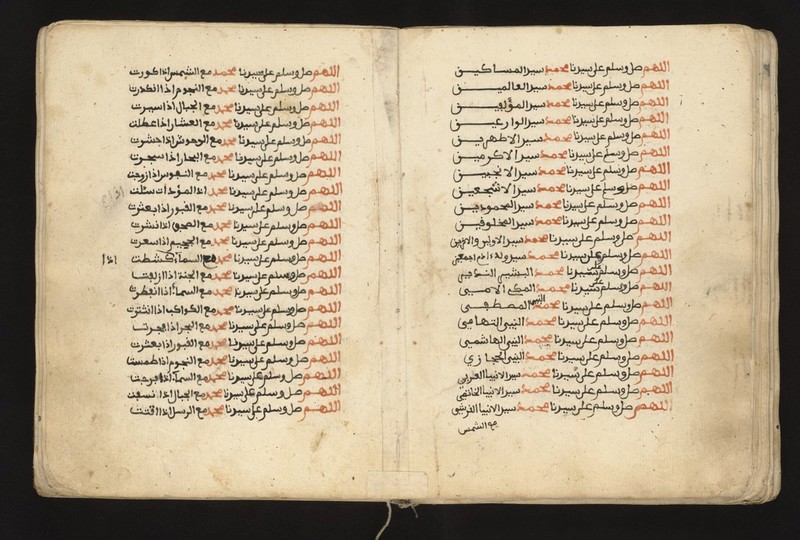 اللهم صل وسلم على سيدنا محمد سيد المساكين
اللهم صل وسلم على سيدنا محمد سيد العالمين
اللهم صل وسلم على سيدنا محمد سيد
اللهم صل وسلم على سيدنا محمد سيد الوارعين
اللهم صل وسلم على سيدنا محمد سيد الاطهرين
اللهم صل وسلم على سيدنا محمد سيد الاكرمين
اللهم صل وسلم على سيدنا محمد سيد الانجبين
اللهم صل وسلم على سيدنا محمد سيد الاشجعين
اللهم صل وسلم على سيدنا محمد سيد المحمودين
اللهم صل وسلم على سيدنا محمد سيد المخلوقين
اللهم صل وسلم على سيدنا محمد سيد الاولين والاخرين
اللهم صل وسلم على سيدنا محمد سيد ولد ادم اجمعين
اللهم صل وسلم على سيدنا محمد البشير
اللهم صل وسلم على سيدنا محمد المكي الامين
اللهم صل وسلم على سيدنا محمد النبي المصطفى
اللهم صل وسلم على سيدنا محمد النبي التهامي
اللهم صل وسلم على سيدنا محمد النبي الهاشمي
اللهم صل وسلم على سيدنا محمد النبي الحجازي
اللهم صل وسلم على سيدنا محمد سيد الانبيا العربي
اللهم صل وسلم على سيدنا محمد سيد الانبيا
اللهم صل وسلم على سيدنا محمد سيد الانبيا القرشي
مع الشمس
اللهم صل وسلم على سيدنا محمد مع الشمس اذا كورت
اللهم صل وسلم على سيدنا محمد مع النجوم اذا انكدرت
اللهم صل وسلم على سيدنا محمد مع الجبال اذا سيرت
اللهم صل وسلم على سيدنا محمد مع العشار اذا عطلت
اللهم صل وسلم على سيدنا محمد مع الوحوش اذا حشرت
اللهم صل وسلم على سيدنا محمد مع البحار اذا سجرت
اللهم صل وسلم على سيدنا محمد مع النفوس اذا زوجت
اللهم صل وسلم على سيدنا محمد اذا المؤدات سئلت
اللهم صل وسلم على سيدنا محمد مع القبور اذا بعثرت
اللهم صل وسلم على سيدنا محمد مع الصحف اذا نشرت
اللهم صل وسلم على سيدنا محمد مع الجحيم اذا سعرت
اللهم صل وسلم على سيدنا محمد مع السما كشطت اذا
اللهم صل وسلم على سيدنا محمد مع الجنة اذا ازلفت
اللهم صل وسلم على سيدنا محمد مع السما اذا انفطرت
اللهم صل وسلم على سيدنا محمد مع الكواكب اذا انتثرت
اللهم صل وسلم على سيدنا محمد مع البحر اذا فجرت
اللهم صل وسلم على سيدنا محمد مع القبور اذا بعثرت
اللهم صل وسلم على سيدنا محمد مع النجوم اذا طمست
اللهم صل وسلم على سيدنا محمد مع السما اذا فرجت
اللهم صل وسلم على سيدنا محمد مع الجبال اذا نسفت
اللهم صل وسلم على سيدنا محمد مع الرسل اذا اقتت